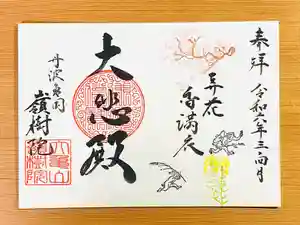 奉拝
令和六年三・四月
弄花
香満衣
大悲殿
丹沢泉園
嶺樹院